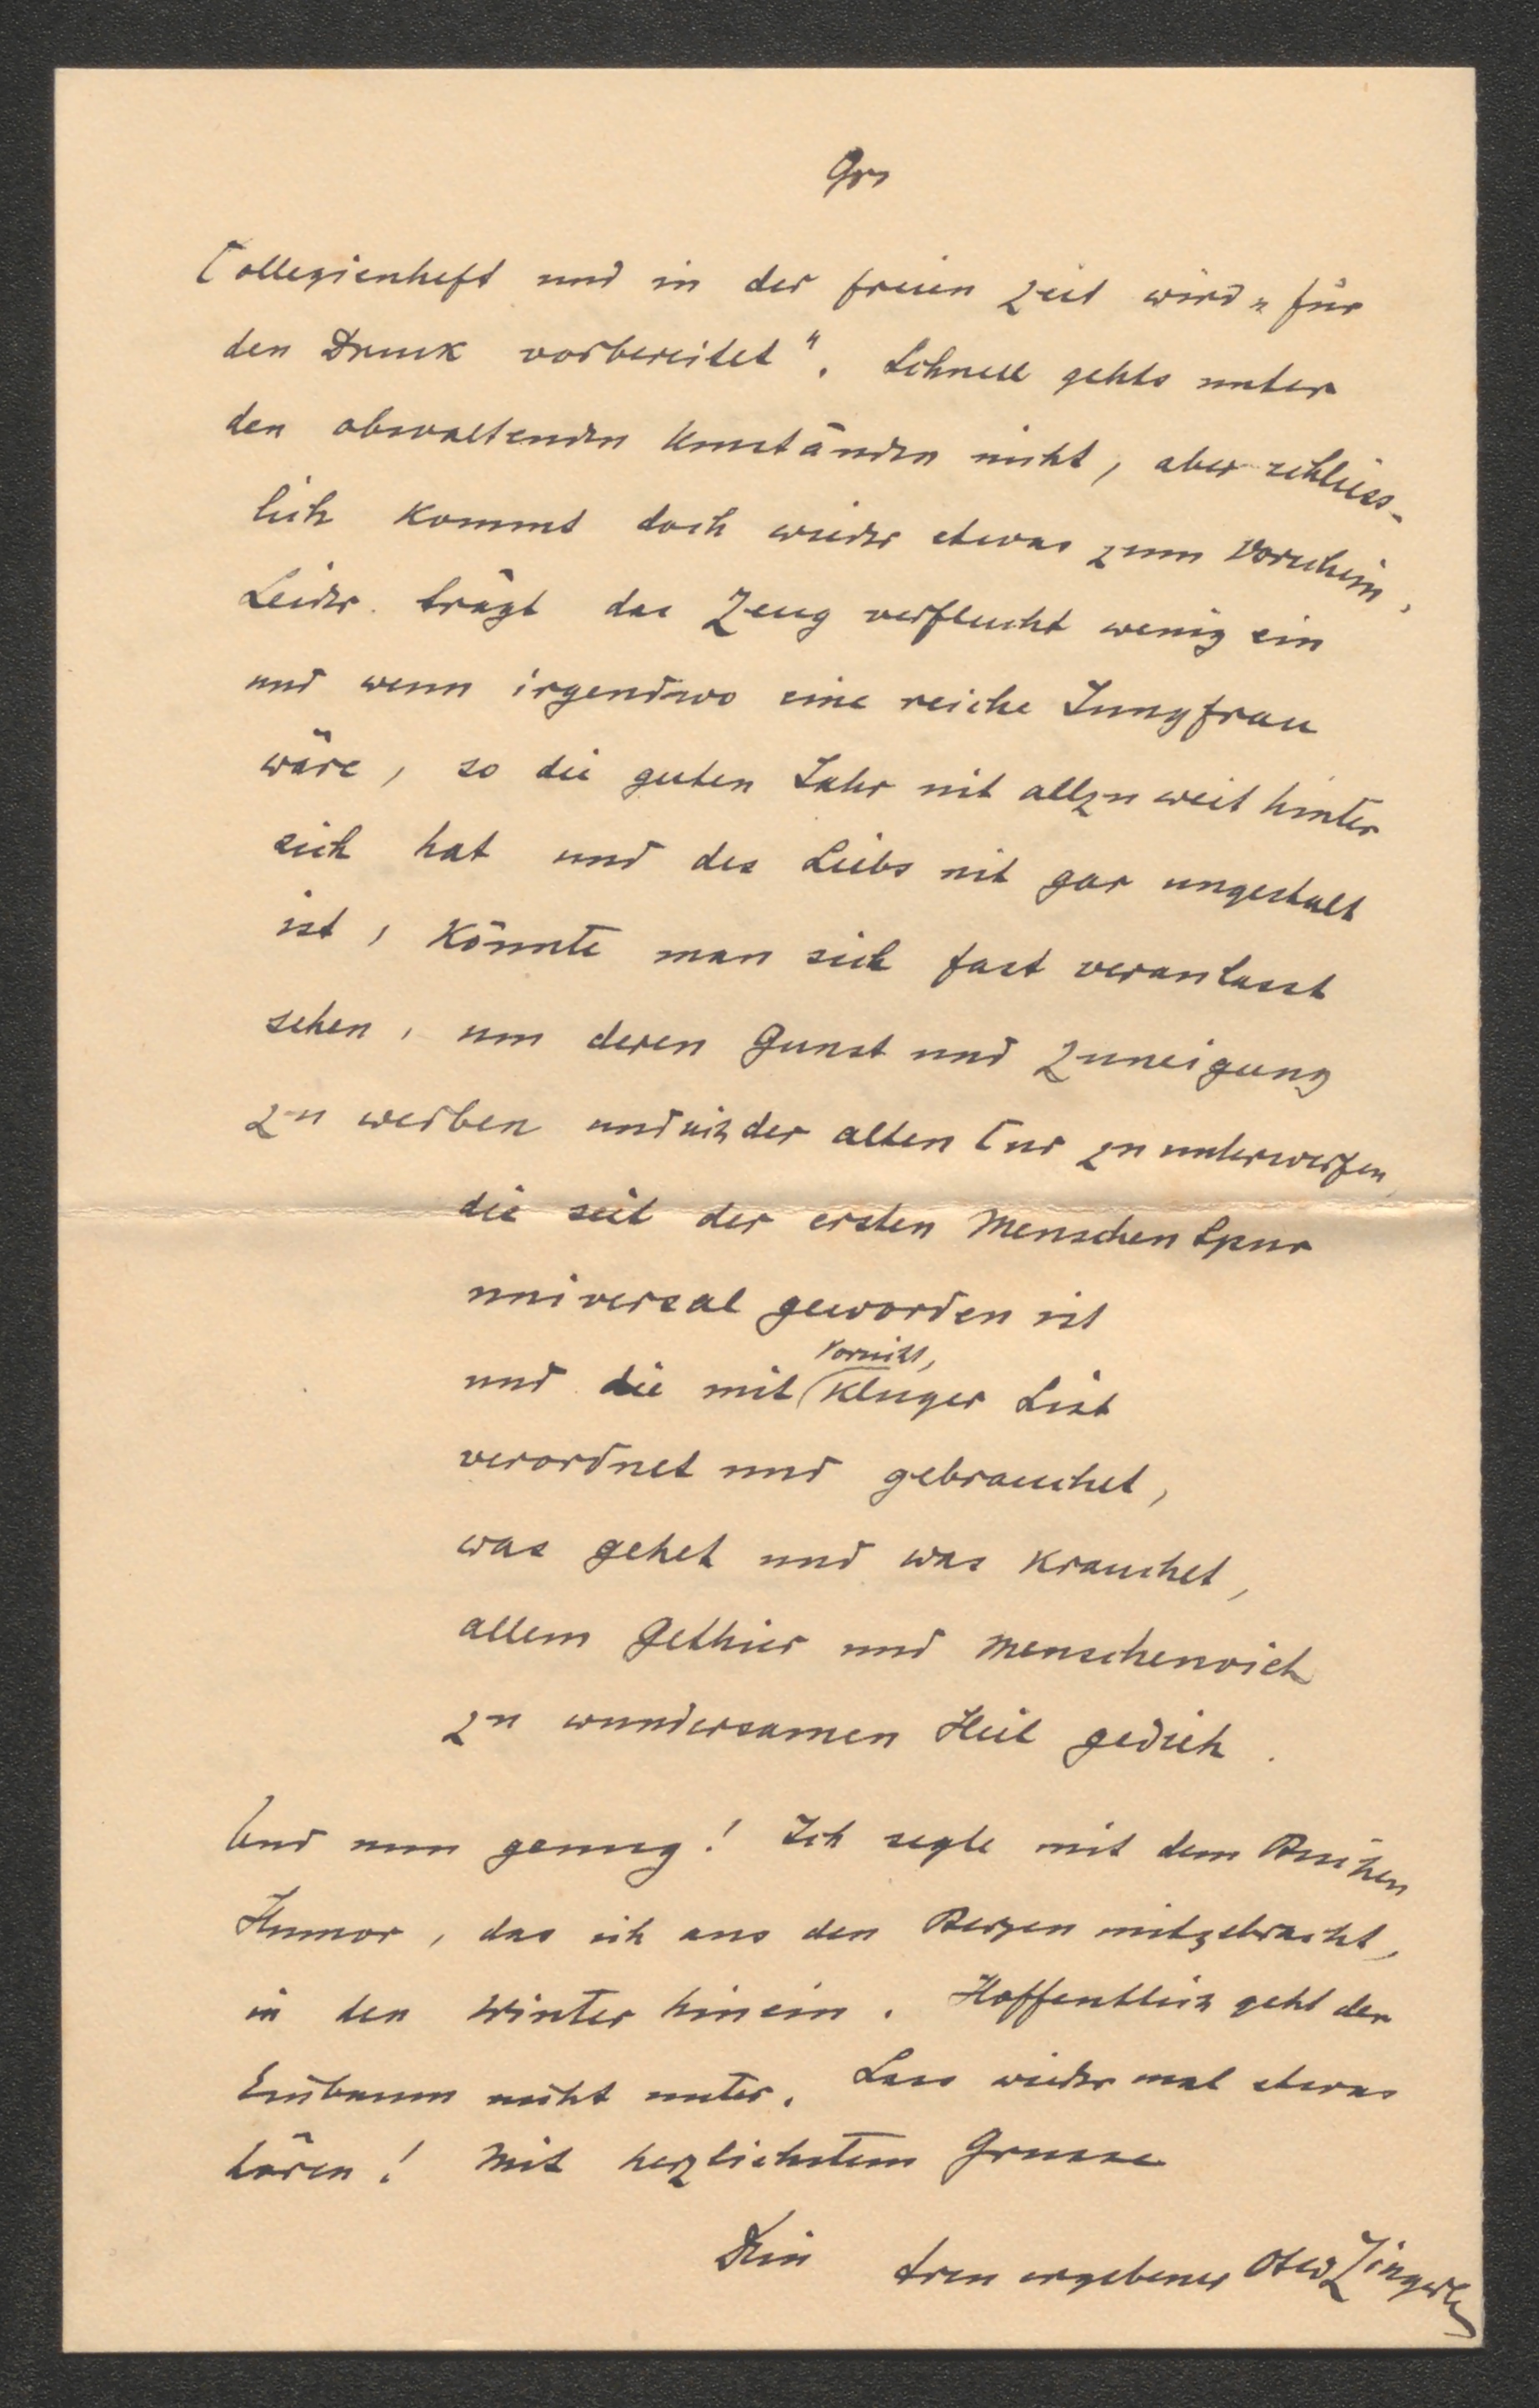 Collegienheft und in der freien Zeit wird „für
den Druck vorbereitet". Schnell gehts unter
den obwaltenden Umständen nicht, aber schliess-
lich kommt doch wieder etwas zum Vorschein,
Leider trägt das Zeug verflucht wenig ein
und wenn irgendwo eine reiche Jungfrau
wäre, so die guten Jahr nit allzu weit hinter
sich hat und des Leibs nit gar ungestalt
ist, könnte man sich fast veranlasst
sehen, um deren Gunst und Zuneigung
zu werben und sich der alten Cur zu unterwerfen,
die seit der ersten Menschen Spur
universal geworden ist
Vorsicht,
und die mit kluger List
verordnet und gebrauchet,
was gehet und was krauchet,
allem Gethier und Menschenvieh
zu wundersamen Heil gedieh.
Und nun genug! Ich segle mit dem
Humor, das ich aus den Bergen mitgebracht,
in den Winter hinein. Hoffentlich geht der
Einbaum nicht unter. Lass wieder mal etwas
hören! Mit herzlichstem Grusse
Dein treu ergebener Osw Zingerle